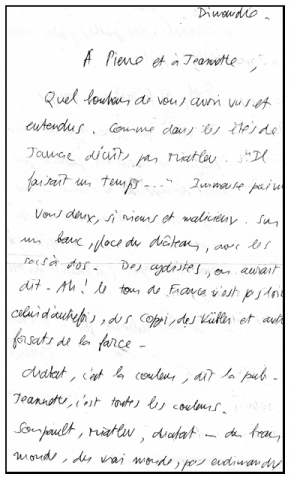 Dimanche.
À Pierre et à Jeannette,
Quel bonheur de vous avoir vus et
entendus. Comme dans les étés de
décrits par "Il
faisait un temps...."
Vous deux, si rieurs et malicieux. Sur
un banc, place du château, avec les
sacs à dos. Des cyclistes, on aurait
dit. Ah! le tour de France n'est pas loin
celui d'autrefois, des Coppi, des Kübler et
forçats de la farce.
c'est la couleur, dit la pub.
Jeannette, c'est toutes les couleurs.
Soupault,
monde, du vrai monde, pas